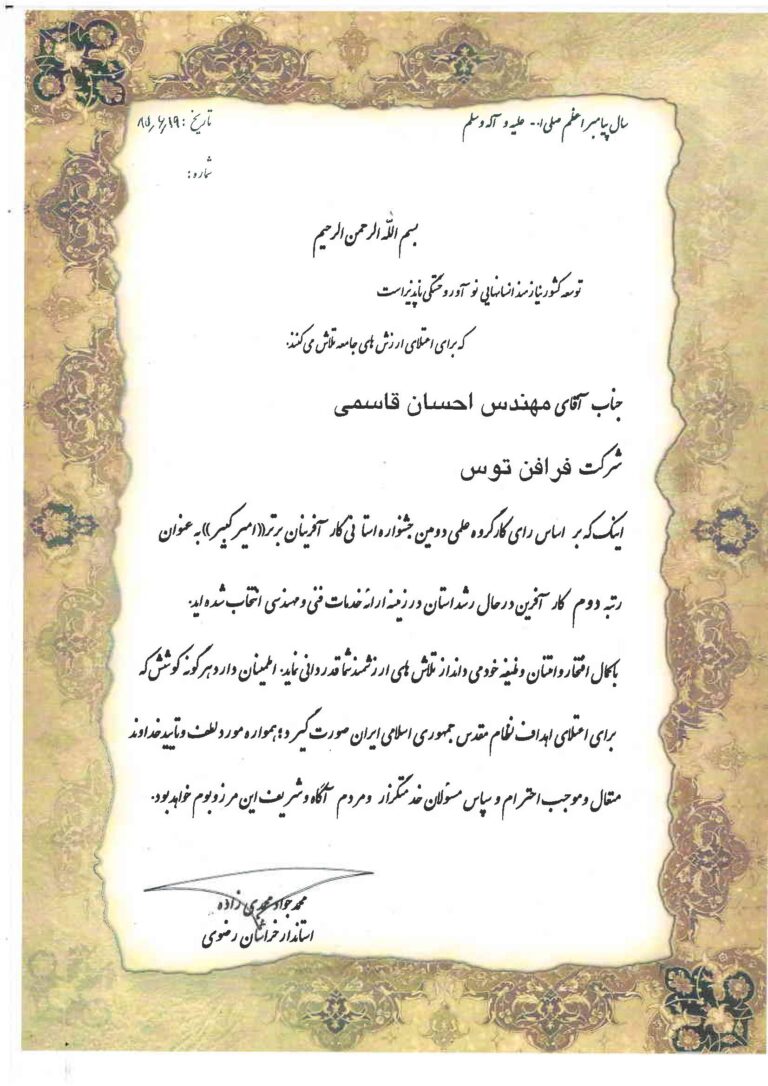 سال پیامبر اعظم صلی ا... علیه و آله وسلم
تاریخ : ۸۵٫۶٫۱۹
شماره :
بسم الله الرحمن الرحیم
توسعه کشور نیازمند انسانهایی نوآور و خستگی ناپذیر است
که برای اعتلای ارزش های جامعه تلاش می کنند.
جناب آقای مهندس احسان قاسمی
شرکت فرافن توس
اینک که بر اساس رای کارگروه علمی دومین جشنواره استانی کار آفرینان برتر((امیرکبیر))به عنوان
رتبه دوم کار آفرین در حال رشد استان در زمینه ارائه خدمات فنی و مهندسی انتخاب شده اید.
باکمال افتخار وامتنان وظیفه خود می داند از تلاش های ارزشمند شما قدردانی نماید. اطمینان دارد هرگونه کوشش که
برای اعتلای اهداف نظام مقدس جمهوری اسلامی ایران صورت گیرد؛همواره مورد لطف وتایید خداوند
متعال وموجب احترام و سپاس مسؤلان خدمتگزار ومردم آگاه وشریف این مرزوبوم خواهد بود.
محمدجواد محمدی زاده
استاندار خراسان رضوی